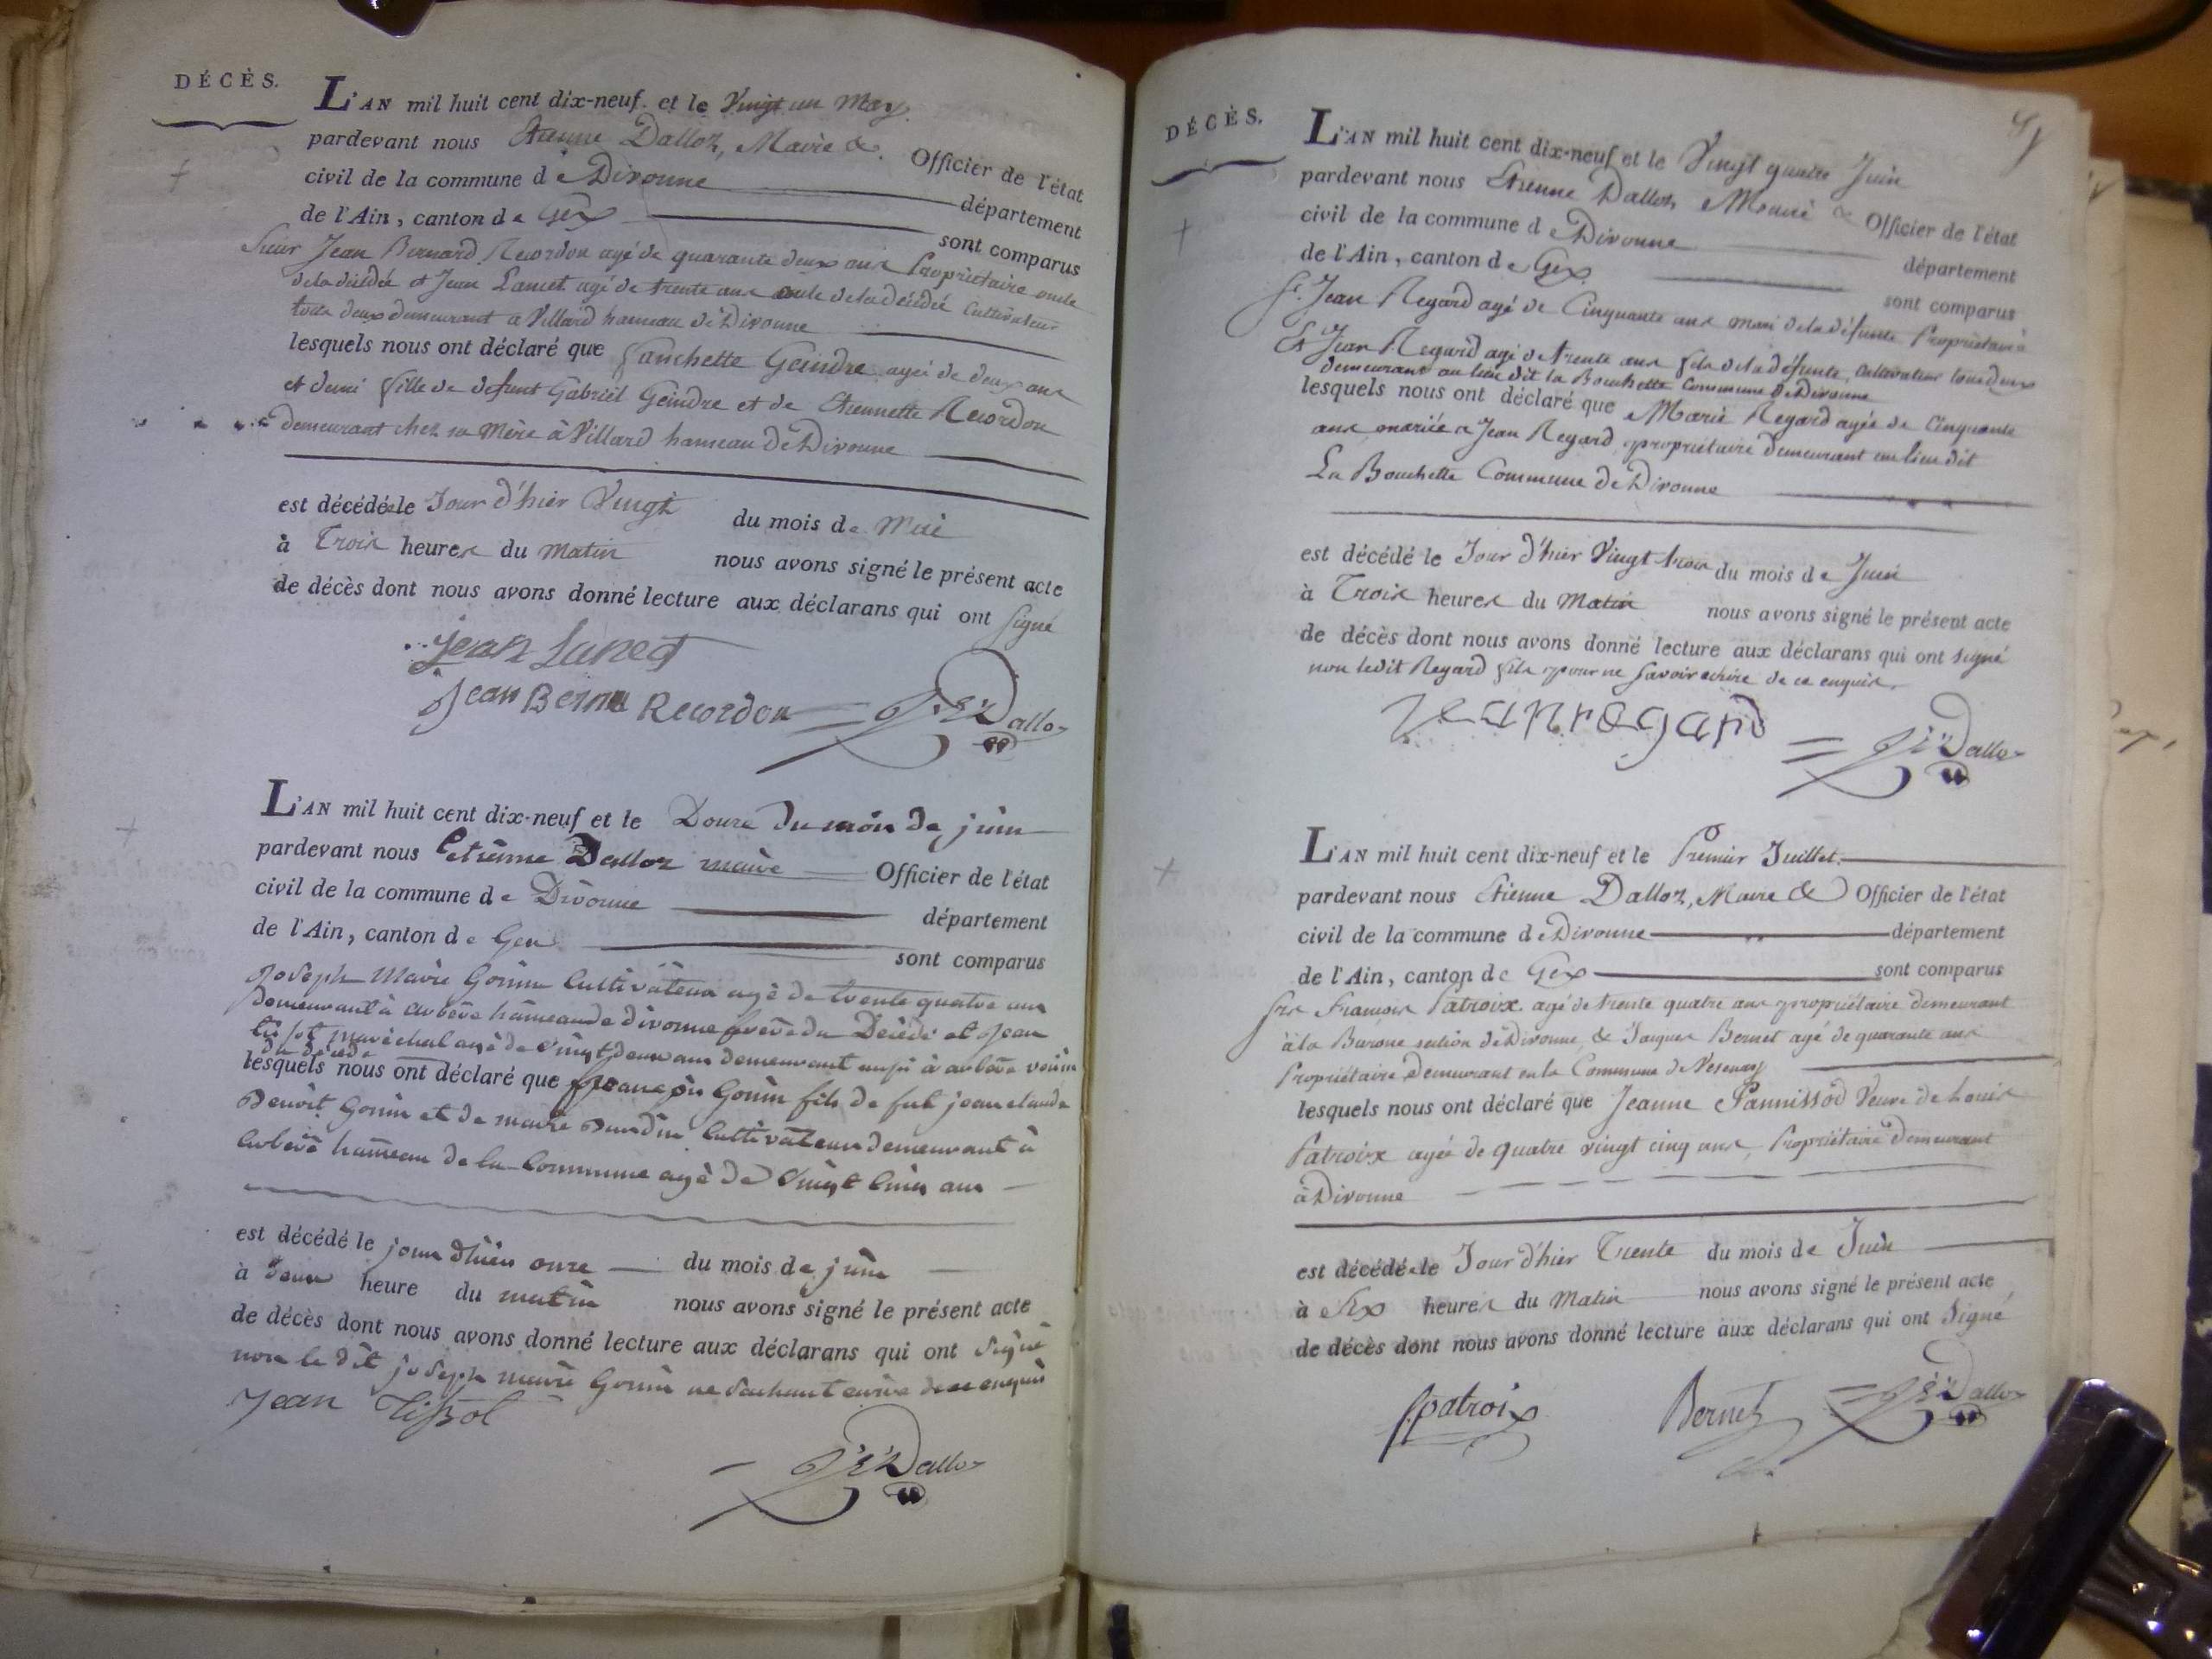 DÉCÈS.
L'AN mil huit cent dix-neuf. et le Vingt un May.
pardevant nous Etienne Dalloz, Maire &. Officier de l'état
civil de la commune de Divonne département
de l'Ain, canton de Gex sont comparus
Sieur Jean Bernard Recordon agé de quarante deux ans Propriétaire oncle
de la décédée et Jean Lancet agé de trente ans oncle de la décédée Cultivateur
tous deux demeurant a Villard hameau de Divonne
lesquels nous ont déclaré que fanchette Geindre agée de deux ans
et demi fille de defunt Gabriël Geindre et de Etiennette Recordon
demeurant chez sa Mère à Villard hameau de Divonne
est décédée le Jour d'hier Vingt du mois de Mai
à Trois heures du Matin nous avons signé le présent acte
de décès dont nous avons donné lecture aux déclarans qui ont signé
Jean Lancet
Jean Berna Recordon Dalloz
L'AN mil huit cent dix-neuf et le Douze du mois de juin
pardevant nous Etiênne Dalloz maire Officier de l'état
civil de la commune de Divonne département
de l'Ain, canton de Gex sont comparus
joseph Marie Gonin Cultivateur agé de trente quatre ans
demeurant à arbère hameau de divonne frère du Décédé et jean
tissot maréchal agé de vingt deux ans demeurant aussi à arbère voisin
du décédé
lesquels nous ont déclaré que françois Gonin fils de fut jean claude
Benoit Gonin et de marie Cultivateur demeurant à
arbère hameau de la Commune agé de Vingt Cinq ans
est décédé le jour dhier onze du mois de juin
à deux heure du matin nous avons signé le présent acte
de décès dont nous avons donné lecture aux déclarans qui ont signé
non le dit joseph marie Gonin ne sachant écrire de ce enquis
Jean Tissot
Dalloz
DÉCÈS.
L'AN mil huit cent dix-neuf et le Vingt quatre Juin
pardevant nous Etienne Dalloz Maire & Officier de l'état
civil de la commune de Divonne département
de l'Ain, canton de Gex sont comparus
Sr. Jean Regard agé de Cinquante ans mari de la défunte Propriétaire
Et Jean Regard agé de trente ans fils de la défunte, Cultivateur tous deux
demeurant au lieu dit la Bouchette Commune de Divonne
lesquels nous ont déclaré que Marie Regard agée de Cinquante
ans mariée a Jean Regard, propriétaire demeurant au lieu dit
La Bouchette Commune de Divonne
est décédé le Jour d'hier Vingt trois du mois de Juin
à Trois heures du Matin nous avons signé le présent acte
de décès dont nous avons donné lecture aux déclarans qui ont signé
non ledit Regard fils pour ne savoir ecrire de ce enquis.
Jeanregard Dalloz
L'AN mil huit cent dix-neuf et le Premier Juillet.
pardevant nous Etienne Dalloz, Maire & Officier de l'état
civil de la commune de Divonne département
de l'Ain, canton de Gex sont comparus
Srs François Patroix agé de trente quatre ans propriétaire demeurant
à la Barone section de Divonne, & Jaques Bernet agé de quarante ans
Propriétaire demeurant en la Commune de Vesenay
lesquels nous ont déclaré que Jeanne Pannissod Veuve de Louis
Patroix agée de quatre vingt cinq ans, Propriétaire demeurant
à Divonne
est décédée le Jour d'hier Trente du mois de Juin
à Six heures du Matin nous avons signé le présent acte
de décès dont nous avons donné lecture aux déclarans qui ont signé
fpatroix Bernet Dalloz